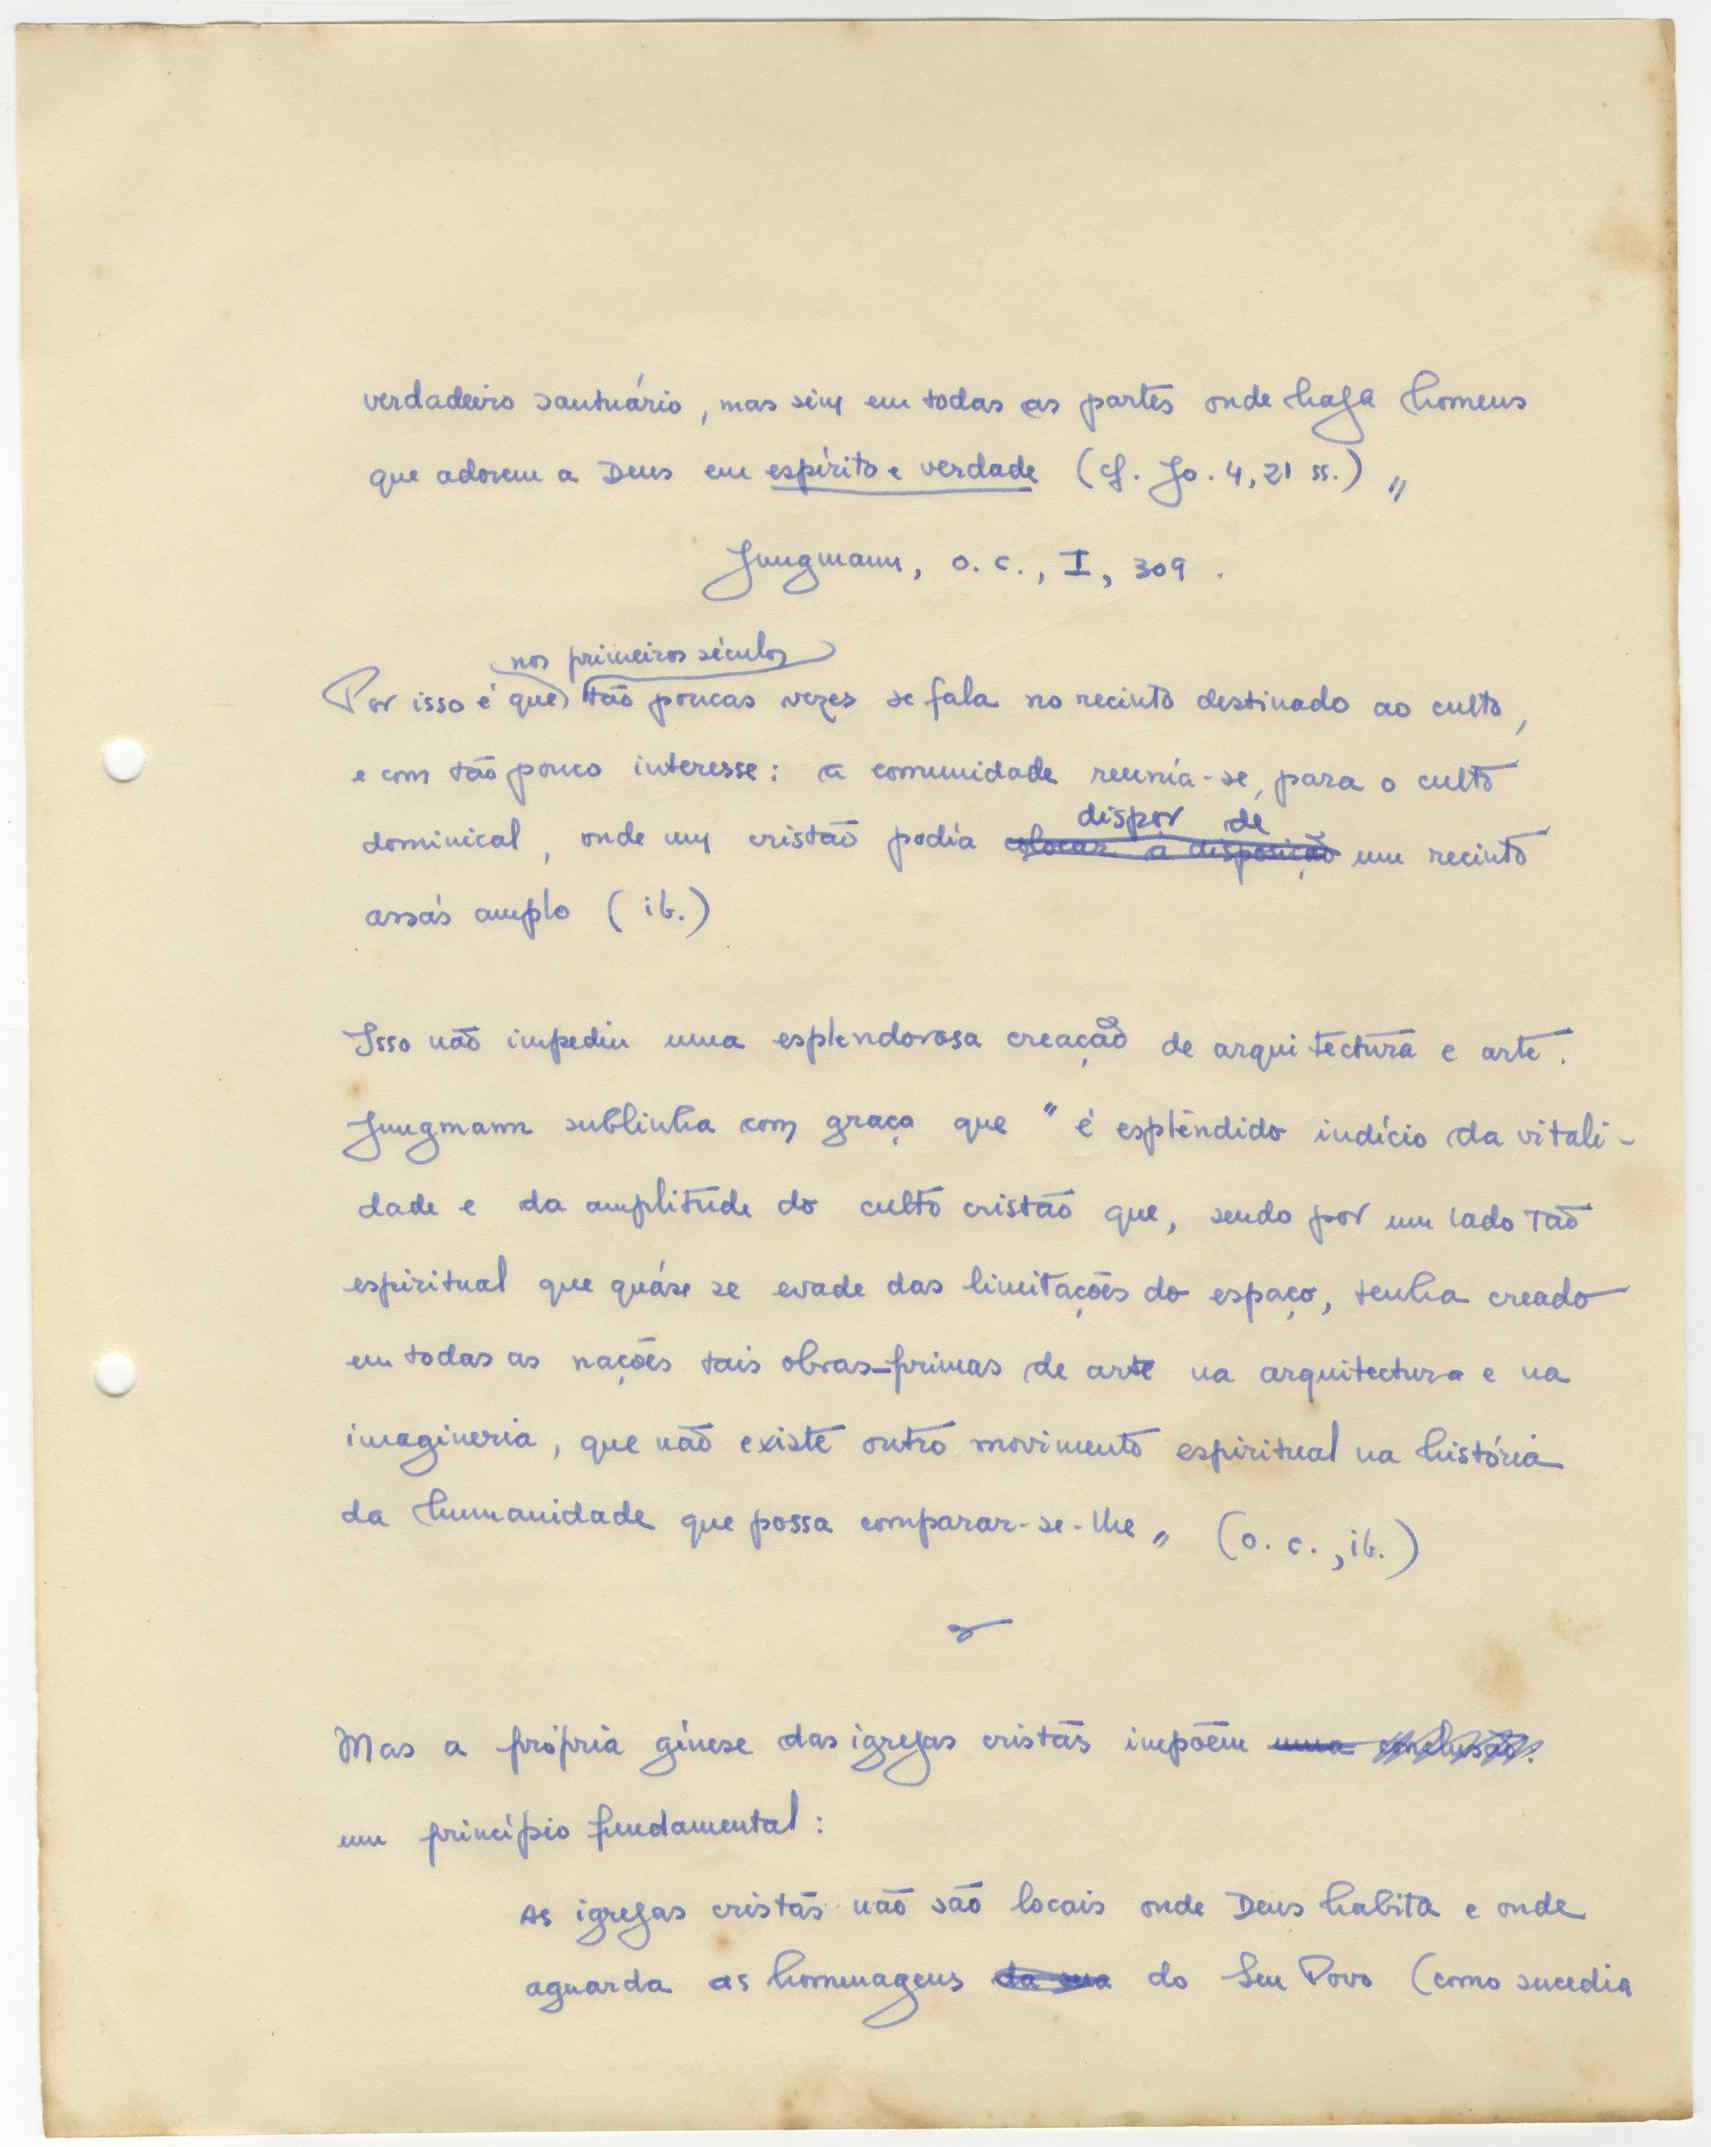 verdadeiro santuário, mas sim em todas as partes onde haja homens
que adorem a Deus em espírito e verdade (cf. Jo. 4, 21 ss.) "
Jungmann, o. c., I, 309.
nos primeiros séculos
Por isso é que tão poucas vezes se fala no recinto destinado ao culto,
e com tão pouco interesse: a comunidade reunía-se, para o culto
dispor de
dominical, onde um cristão podia colocar a disposição um recinto
assás amplo (ib.)
Isso não impediu uma esplendorosa creação de arquitectura e arte.
Jungmann sublinha com graça que "é esplêndido indício da vitali-
dade e da amplitude do culto cristão que, sendo por um lado tão
espiritual que quáse se evade das limitações do espaço, tenha creado
em todas as nações tais obras-primas de arte na arquitectura e na
imagineria, que não existe outro movimento espiritual na história
da humanidade que possa comparar-se-lhe" (o. c., ib.)
Mas a própria génese das igrejas cristãs impõem uma conclusão.
um princípio fundamental:
As igrejas cristãs não são locais onde Deus habita e onde
aguarda as homenagens da sua do Seu Povo (como sucedia